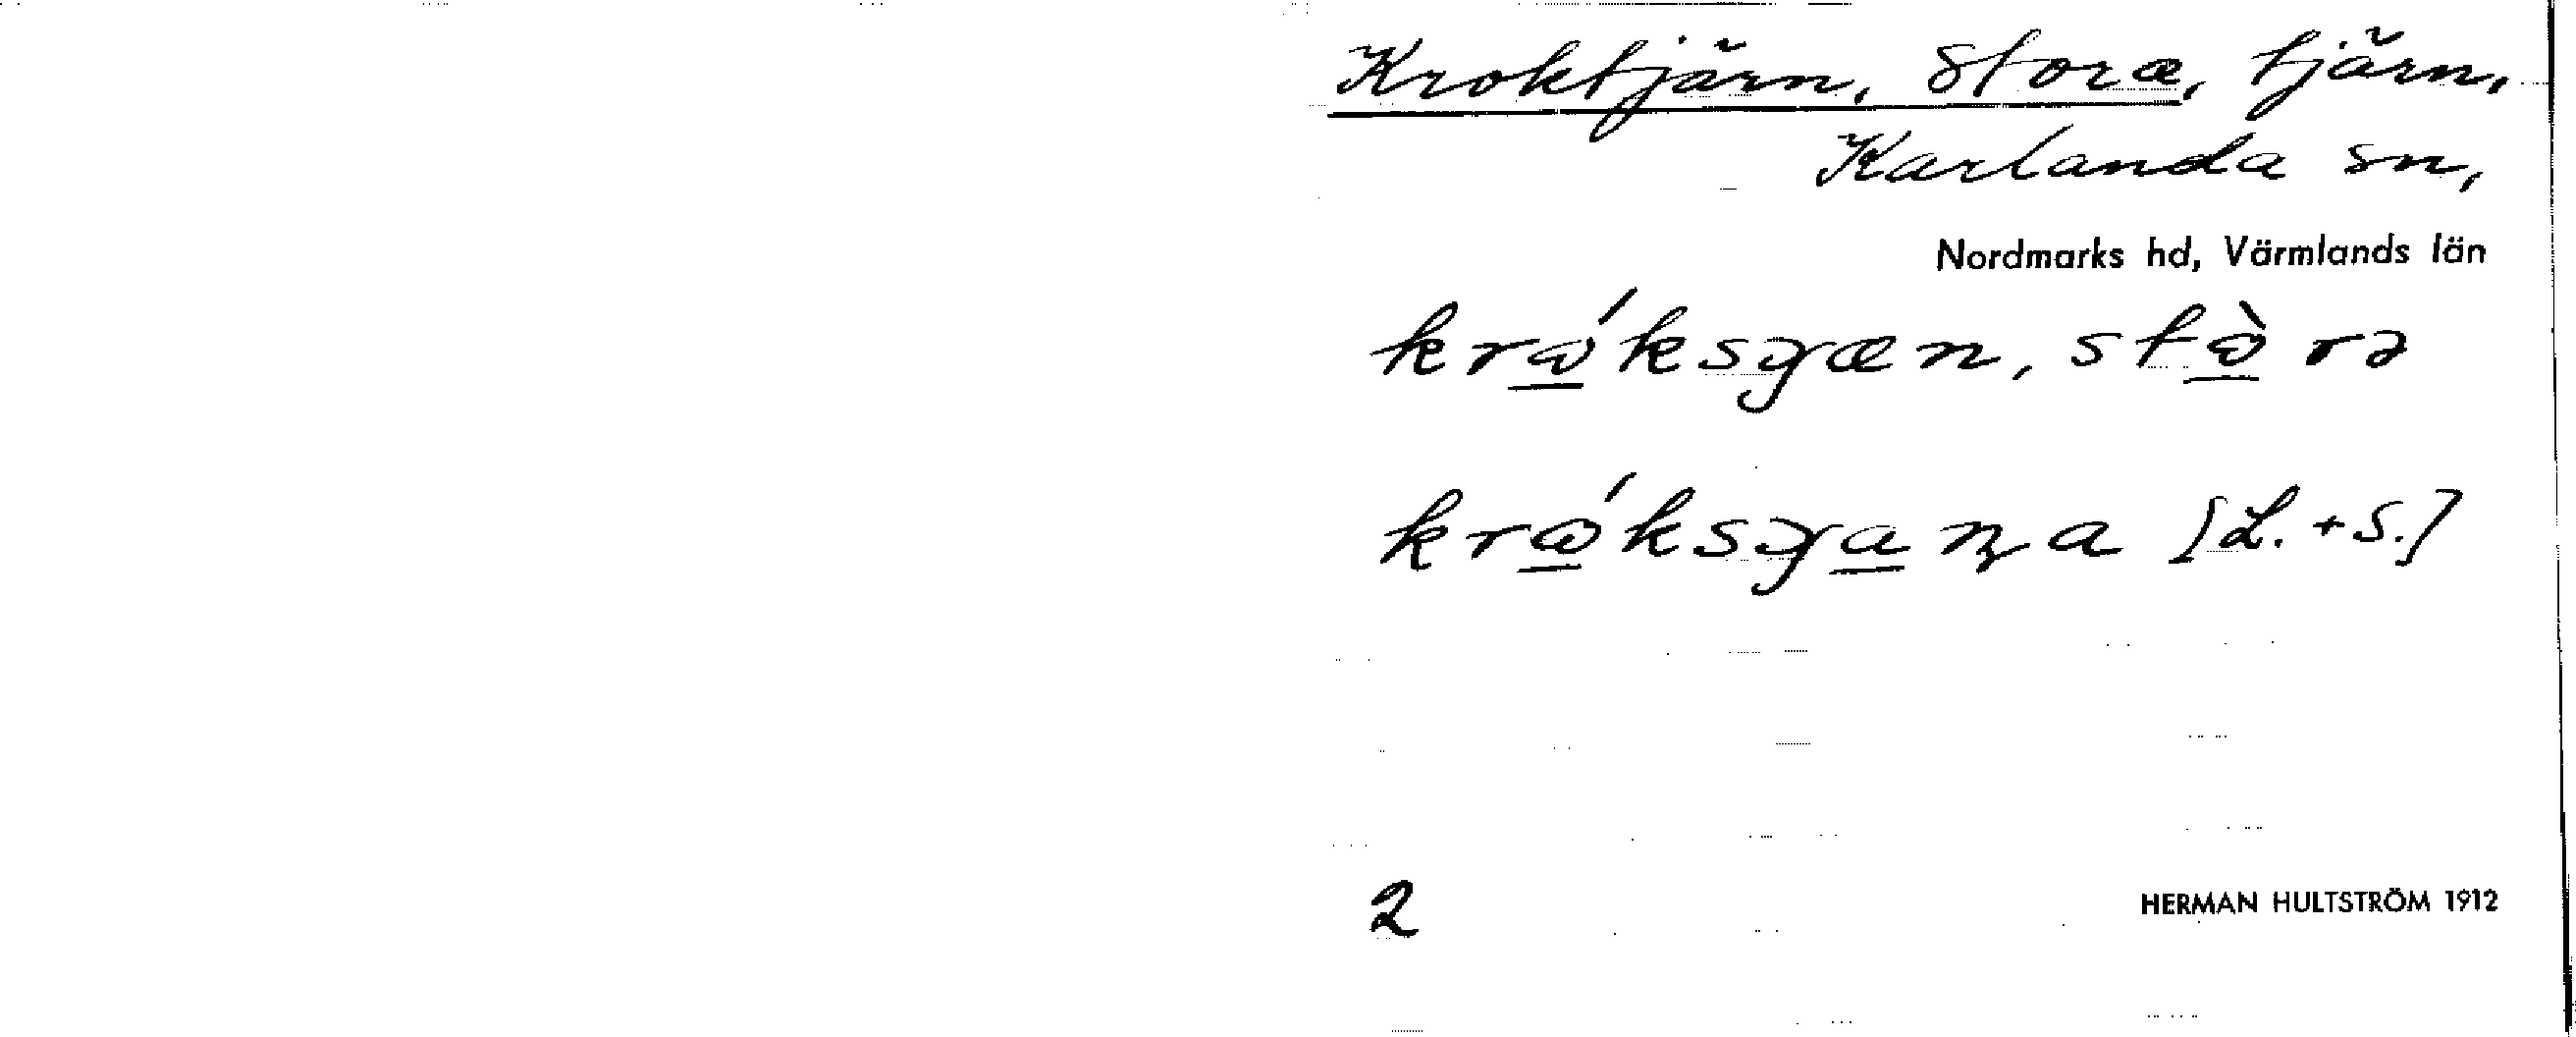 Kroktjärn, Stora, tjärn,
Karlanda sn,
Nordmarks hd, Värmlands län
krώksyæn, stὼrə
krώksyaꞃa [L. + S.]
2
HERMAN HULTSTRÖM 1912